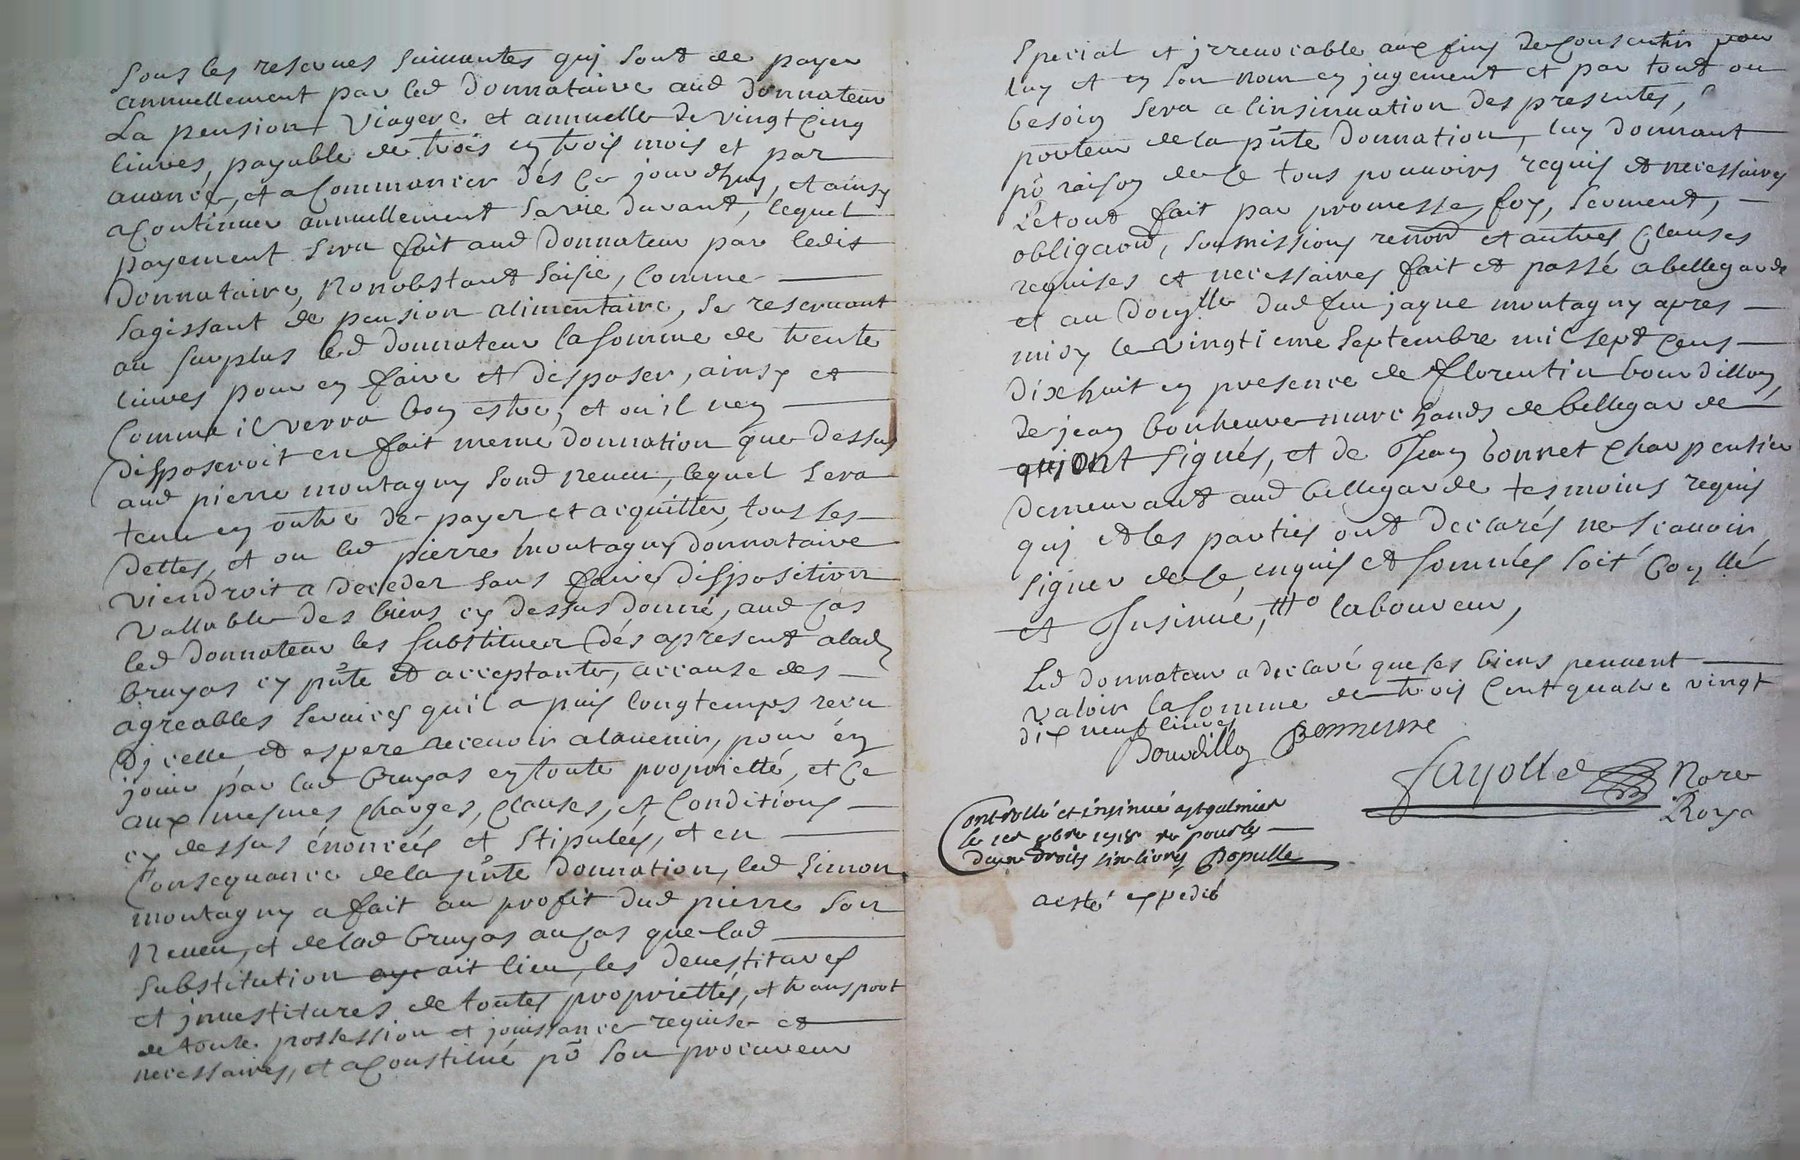 sous les reserves suivantes quj sont de payer
annuellement par led donnataire aud donnateur
La pension viagere et annuelle de vingt cinq
liuves, payable de trois en trois mois et par
auance, et a commancer dés ce jourdhuy, et ainsy
a continuer annuellement sa vie durant, lequel
payement sera fait aud donnateur par ledit
donnataire, nonobstant saisie, comme
sagissant de pension alimentaire, se reseruant
au surplus led donnateur la somme de trente
liures pour en faire et disposer, ainsy et
comme il verra bon estre, et ou il nen
disposeroit en fait meme donnation que dessus
aud pierre montagny sond neueu, lequel sera
tenu en outre de payer et acquitter, tous ses
dettes, et ou led pierre montagny donnataire
viendroit a deceder sans faire disposition
vallable des biens cy dessus donné, aud cas
led donnateur les substituer dés apresent a lad
bruyas cy pnte et acceptante, accause des
agreables seruices quil a puis longtemps receu
dicelle, et espere receuoir a lauenir, pour én
jouir par lad bruyas en toute proprietté, et ce
aux mesmes charges, clauses, et conditions
cy dessus énoncéés et stipuléés, et en
consequance de la pnte donnation, led simon
montagny a fait au profit dud pierre son
neueu, et de lad bruyas au cas que lad
substitution aye ait lieu, les deuestitures
et jnuestitures de toutes propriettés, et transport
de toute possession et jouissance requise et
necessaires, et a constitué po son procureur
special et jrreuocable aux fins de consentir pour
luy et en son nom en jugement et par tout ou
besoin sera a linsinuation des presentes,
porteur de la pnte donnation, luy donnant
po raison de ce tous pouuoirs requis et necessaires
Letout fait par promesse, foy, serment,
obligaõn, soumissions renõn et autres clauses
requises et necessaires fait et passé a bellegarde
et au domjlle dud feu jaque montagny apres
midy le vingtieme septembre mil sept cens
dixhuit en presence de florentin bourdillon,
de jean bonheure marchands de bellegarde
quj ont signés, et de Jean bonnet charpentier
demeurant aud bellegarde tesmoins requis
quj et les parties ont declarés ne scauoir
signer de ce enquis et sommés soit coñllé
et Jnsinué, tto laboureur,
Led donnateur a declaré que ses biens peuuent
valoir la somme de trois cent quatre vingt
dix neuf liures
Bourdillon Bonneure
fayolle Nore
Roya
Controllé et insinué a st galmier
le 1er 8bre 1718 pour les
deux droits six livres Populle
a esté expedié